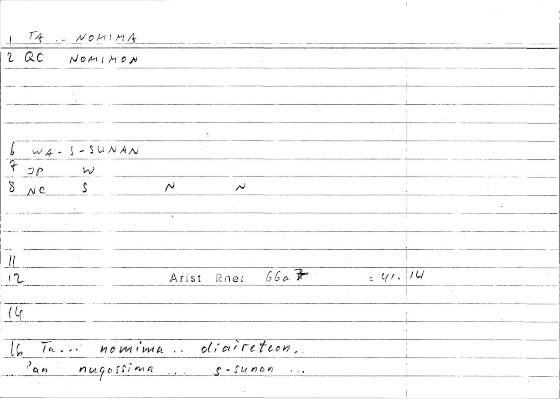 1 TA .. NOMIMA
2 QC NOMIMON
6 WA-S-SUNAN
7 JP W
8 NC S N N
11
12 Arist Rhet 66a 7 = 41. 14
14
16 Ta... nomima .. diaireteon.
'an nugassima ... s-sunan ...